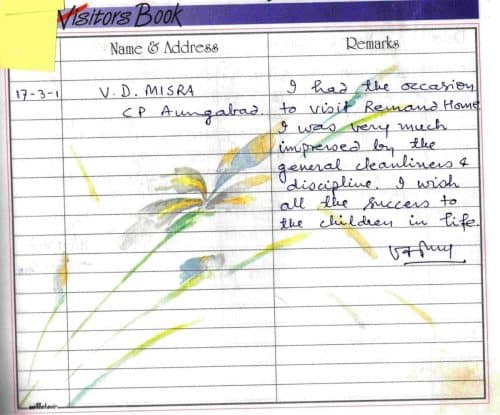 Visitors Book
Name & Address Remarks
17-3-1 V. D. MISRA I had the occasion
CP Aurngabad. to visit Remand Home
I was very much
impressed by the
general cleanliness &
discipline. I wish
all the success to
the children in life.